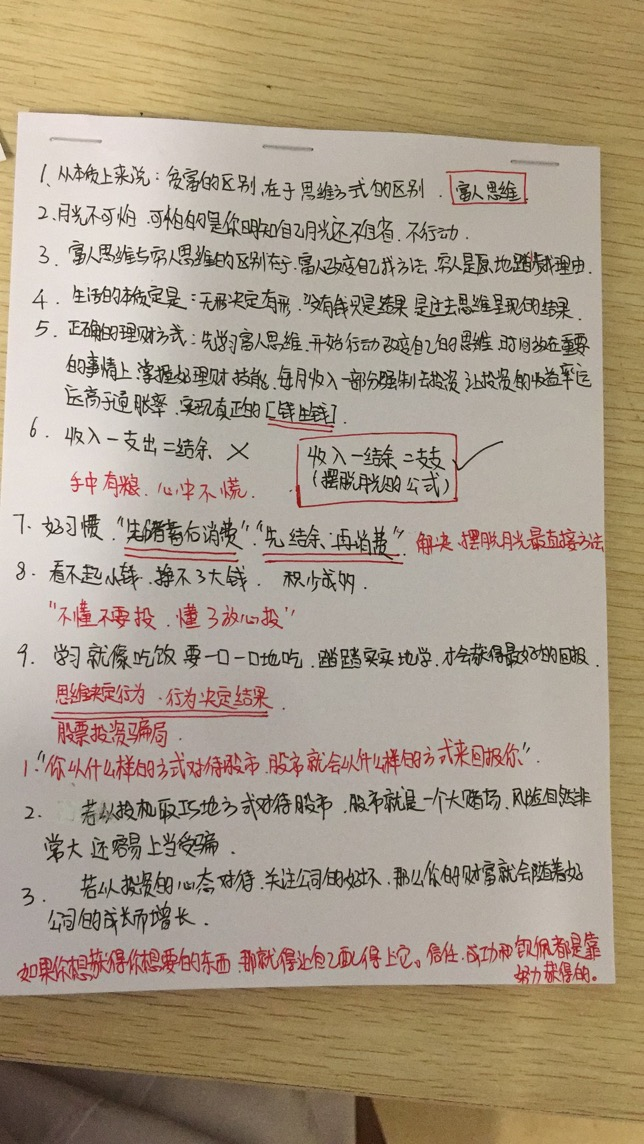 1、从本质上来说：贫富的区别，在于思维方式的区别．富人思维．
2．月光不可怕，可怕的是你明知自己月光还不自省，不行动．
3．富人思维与穷人思维的区别在于，富人改变自己找方法，穷人是原地踏步找理由．
4．生活的本质定是：无形决定有形，没有钱只是结果，是过去思维呈现的结果．
5．正确的理财方式：先学习富人思维，开始行动改变自己的思维，时间放在重要
的事情上，掌握好理财技能，每月收入一部分强制去投资，让投资的收益率远
远高于通胀率，实现真正的［钱生钱］．
6．收入－支出＝结余 ×
收入－结余＝支出 ✓
（摆脱月光的公式）
手中有粮，心中不慌．
7、好习惯．“先储蓄后消费”“先结余，再消费”．解决、摆脱月光最直接方法
8．看不起小钱，挣不了大钱． 积少成多．
“不懂不要投，懂了放心投”
9．学习就像吃饭要一口一口地吃，踏踏实实地学，才会获得最好的回报．
思维决定行为，行为决定结果．
股票投资骗局．
1．“你以什么样的方式对待股市，股市就会以什么样的方式来回报你”．
2． 若以投机取巧地方式对待股市，股市就是一个大赌场，风险自然非
常大，还容易上当受骗．
3． 若以投资的心态对待，关注公司的好坏，那么你的财富就会随着好
公司的成长而增长．
如果你想获得你想要的东西，那就得让自己配得上它。信任，成功和钦佩都是靠
努力获得的。